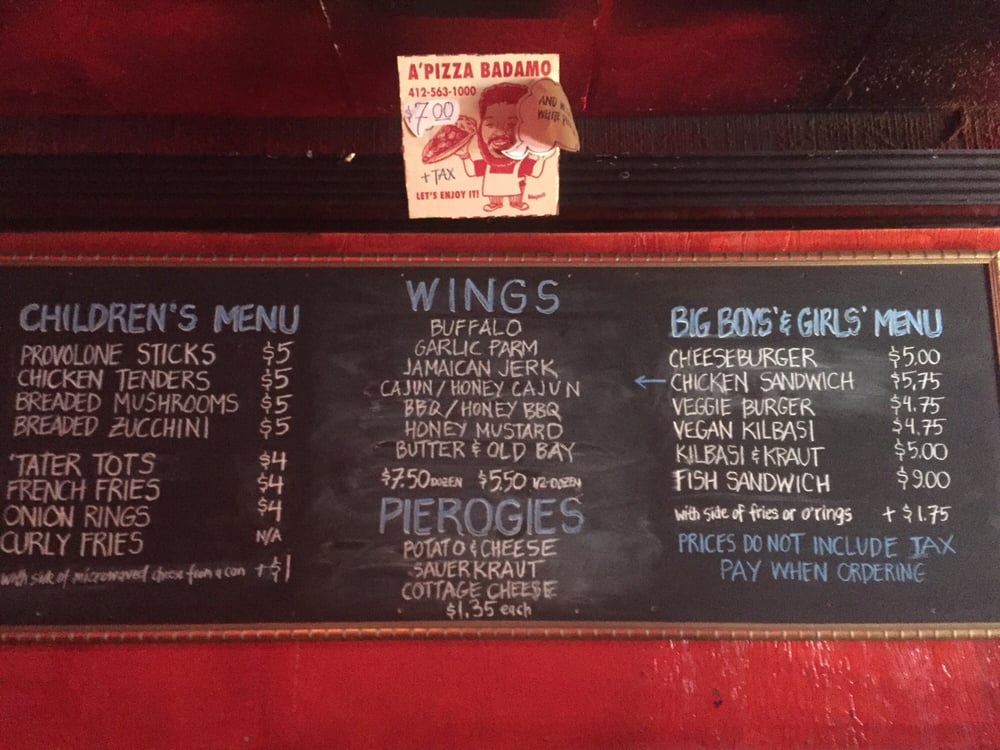 A'PIZZA BADAMO
412-563-1000
$7.00
AND
WHITE
+ TAX
LET'S ENJOY IT!
CHILDREN'S MENU
PROVOLONE STICKS $5
CHICKEN TENDERS $5
BREADED MUSHROOMS $5
BREADED ZUCCHINI $5
'TATER TOTS $4
FRENCH FRIES $4
ONION RINGS $4
CURLY FRIES N/A
with side of microwaved cheese from a can + $1
WINGS
BUFFALO
GARLIC PARM
JAMAICAN JERK
CAJUN / HONEY CAJUN
BBQ / HONEY BBQ
HONEY MUSTARD
BUTTER & OLD BAY
$7.50 DOZEN $5.50 1/2-DOZEN
PIEROGIES
POTATO & CHEESE
SAUERKRAUT
COTTAGE CHEESE
$1.35 each
BIG BOYS' & GIRLS' MENU
CHEESEBURGER $5.00
← CHICKEN SANDWICH $5.75
VEGGIE BURGER $4.75
VEGAN KILBASI $4.75
KILBASI & KRAUT $5.00
FISH SANDWICH $9.00
with side of fries or o'rings + $1.75
PRICES DO NOT INCLUDE TAX
PAY WHEN ORDERING